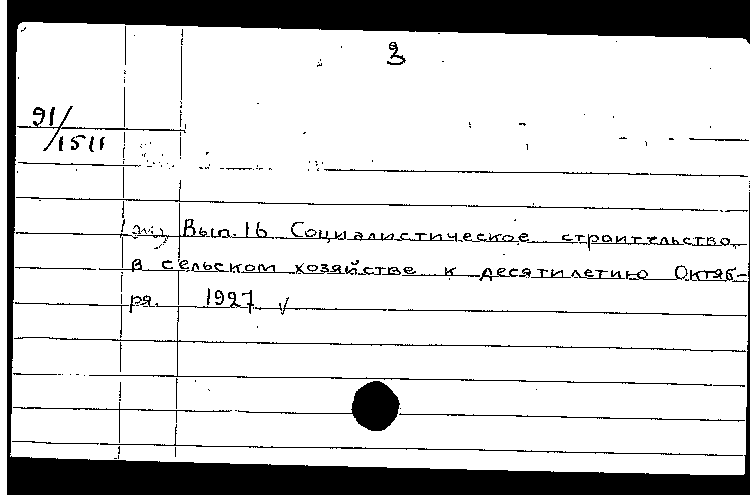 3
91/1511
Вып. 16 Социалистическое строительство
в сельском хозяйстве к десятилетию Октяб-
ря. 1927. √